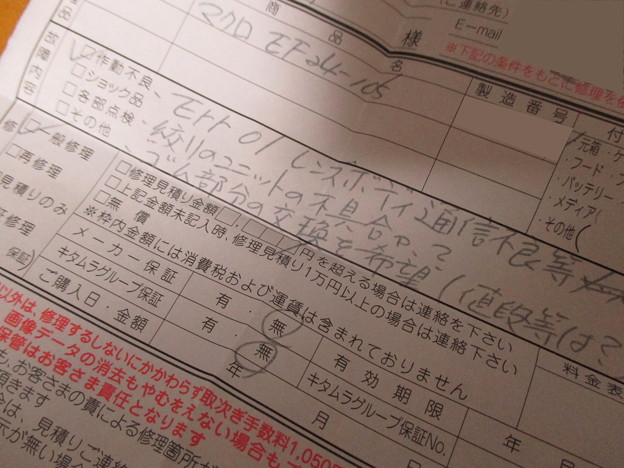 ご連絡先)
E-mail
様
※下記の条件をもとに修理を
商品名
マクロ EF24-105
製造番号
付
故障内容
作動不良
ショック品
各部点検
その他
Err 01 レンズボディ通信不良等
絞りのユニットの不具合?
ゴム部分の交換を希望(値段等は?
元箱・ケ
・フード・フ
バッテリー
・メディア(
・その他(
一般修理
再修理
見積りのみ
修理見積り金額 円を超える場合は連絡を下さい
上記金額未記入時、修理見積り1万円以上の場合は連絡下さい
無償
※枠内金額には消費税および運賃は含まれておりません
メーカー保証 有・無
キタムラグループ保証 有・無
ご購入日・金額 年 月
有効期限 年
キタムラグループ保証No.
料金表
以外は、修理するしないにかかわらず取次ぎ手数料1,050
画像データの消去もやむをえない場合も
保管はお客さま責任となります
もお客さまの責による修理箇所が
頂きます
見積りご連絡
示が無い場合